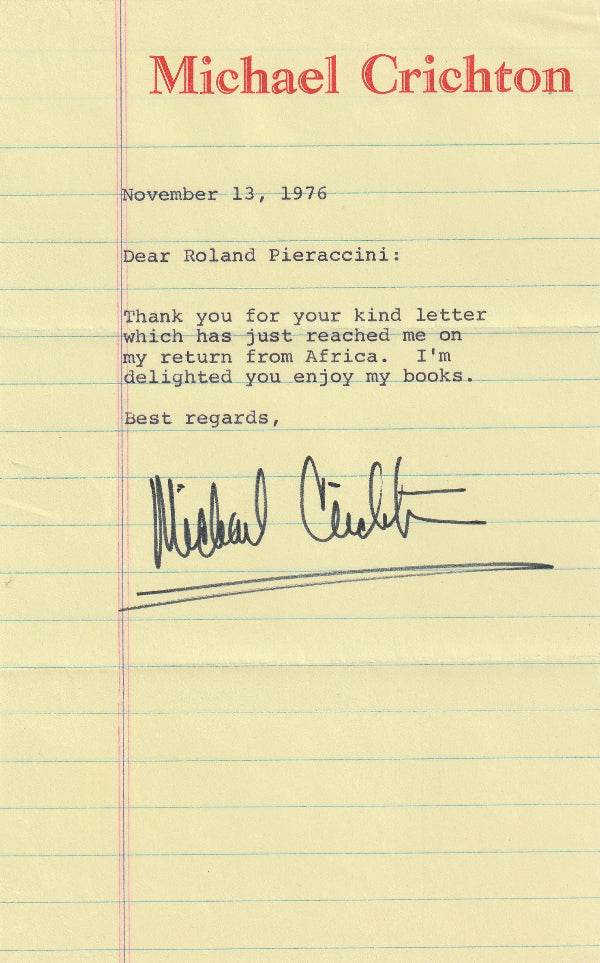 Michael Crichton
November 13, 1976
Dear Roland Pieraccini:
Thank you for your kind letter
which has just reached me on
my return from Africa.  I'm
delighted you enjoy my books.
Best regards,
Michael Crichton